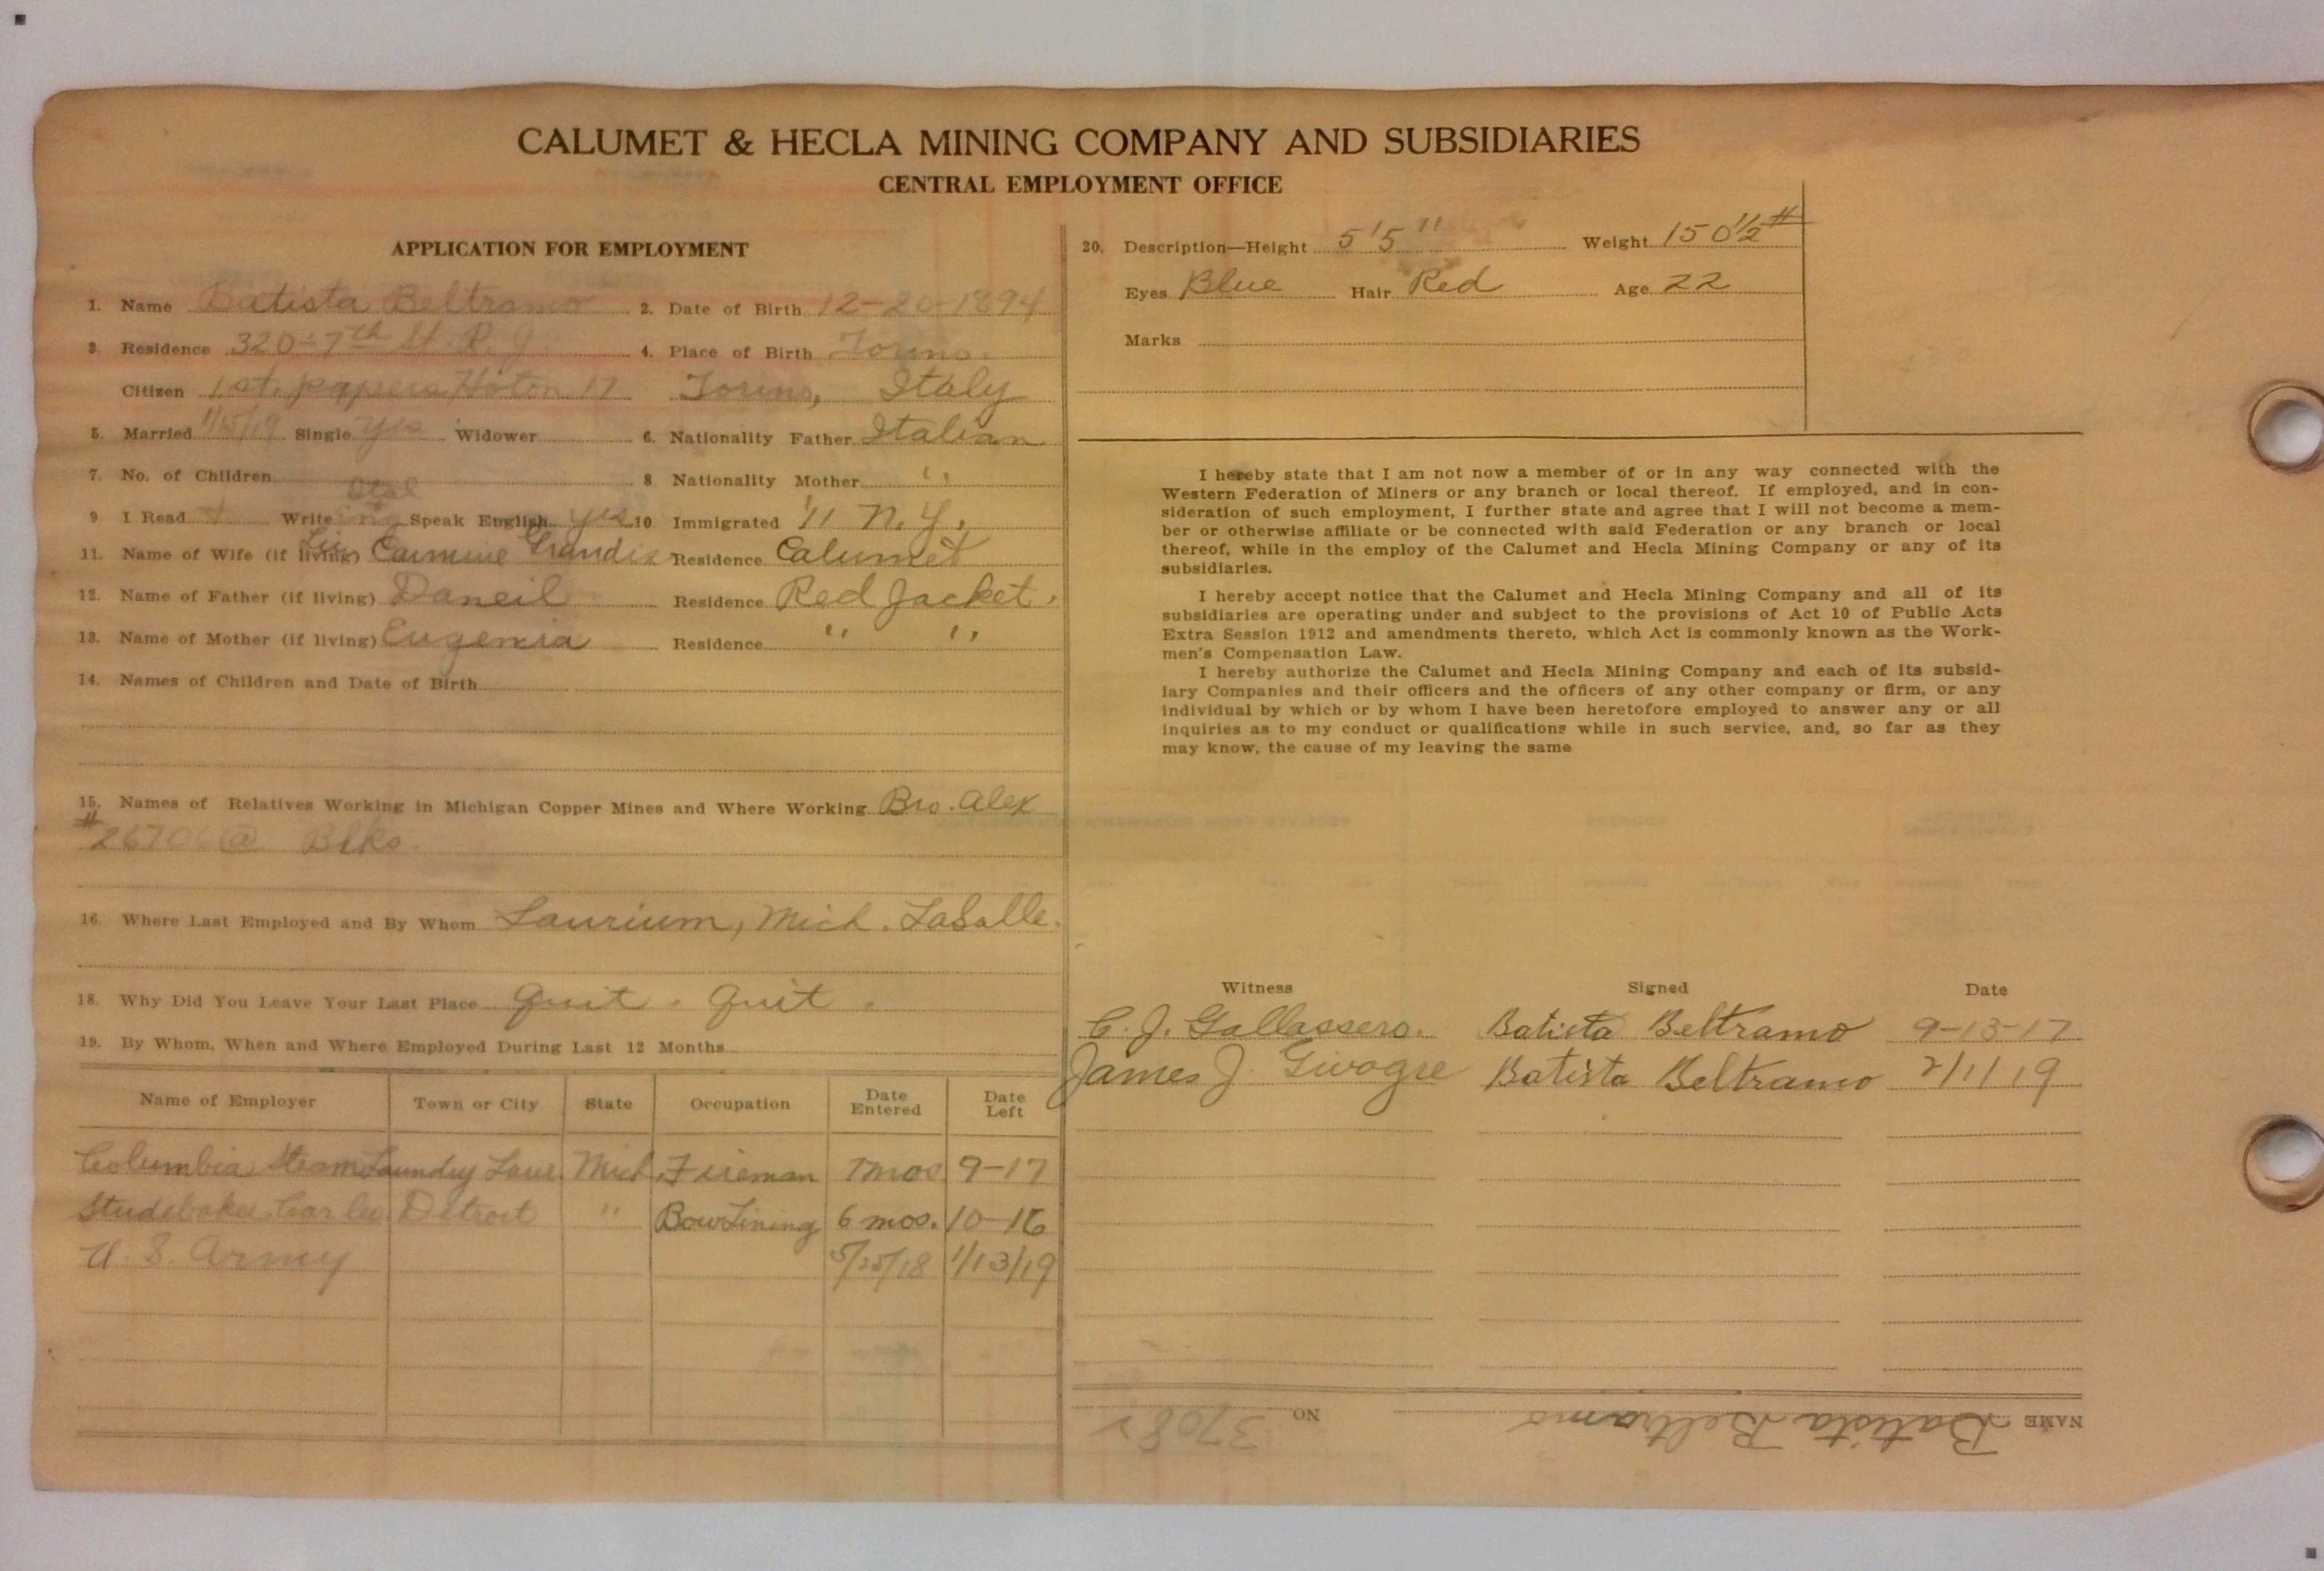 CALUMET & HECLA MINING COMPANY AND SUBSIDIARIES
CENTRAL EMPLOYMENT OFFICE
APPLICATION FOR EMPLOYMENT
1. Name Batista Beltramo 2. Date of Birth 12-20-1894
3. Residence 320-7th St. R. J. 4. Place of Birth Torino.
Citizen 1st. papers Hoton 17 Torino, Italy
5. Married 1/15/19 Single yes Widower 6. Nationality Father Italian
7. No. of Children 8 Nationality Mother " "
Ital
9 I Read Write Speak English yes 10 Immigrated '11 N.Y.
11. Name of Wife (if living) Carmine Residence Calumet
12. Name of Father (if living) Daneil Residence Red Jacket.
13. Name of Mother (if living) Eugenia Residence " "
14. Names of Children and Date of Birth
15. Names of Relatives Working in Michigan Copper Mines and Where Working Bro. Alex
#26706 @ Blks.
16. Where Last Employed and By Whom Laurium, Mich. LaSalle.
18. Why Did You Leave Your Last Place Quit. Quit.
19. By Whom, When and Where Employed During Last 12 Months
Name of Employer Town or City State Occupation Date Entered Date Left
Columbia Steam Laundry Laur. Mich. Fireman 7 mos 9-17
Studebaker Car Co Detroit " 6 mos. 10-16
U. S. Army 5/25/18 1/13/19
20. Description—Height 5'5" Weight 150½#
Eyes Blue Hair Red Age 22
Marks
I hereby state that I am not now a member of or in any way connected with the
Western Federation of Miners or any branch or local thereof. If employed, and in con-
sideration of such employment, I further state and agree that I will not become a mem-
ber or otherwise affiliate or be connected with said Federation or any branch or local
thereof, while in the employ of the Calumet and Hecla Mining Company or any of its
subsidiaries.
I hereby accept notice that the Calumet and Hecla Mining Company and all of its
subsidiaries are operating under and subject to the provisions of Act 10 of Public Acts
Extra Session 1912 and amendments thereto, which Act is commonly known as the Work-
men's Compensation Law.
I hereby authorize the Calumet and Hecla Mining Company and each of its subsid-
iary Companies and their officers and the officers of any other company or firm, or any
individual by which or by whom I have been heretofore employed to answer any or all
inquiries as to my conduct or qualifications while in such service, and, so far as they
may know, the cause of my leaving the same
Witness Signed Date
C. J. Gallassero. Batista Beltramo 9-13-17
James J. Batista Beltramo 2/1/19
NAME Batista Beltramo NO 3708